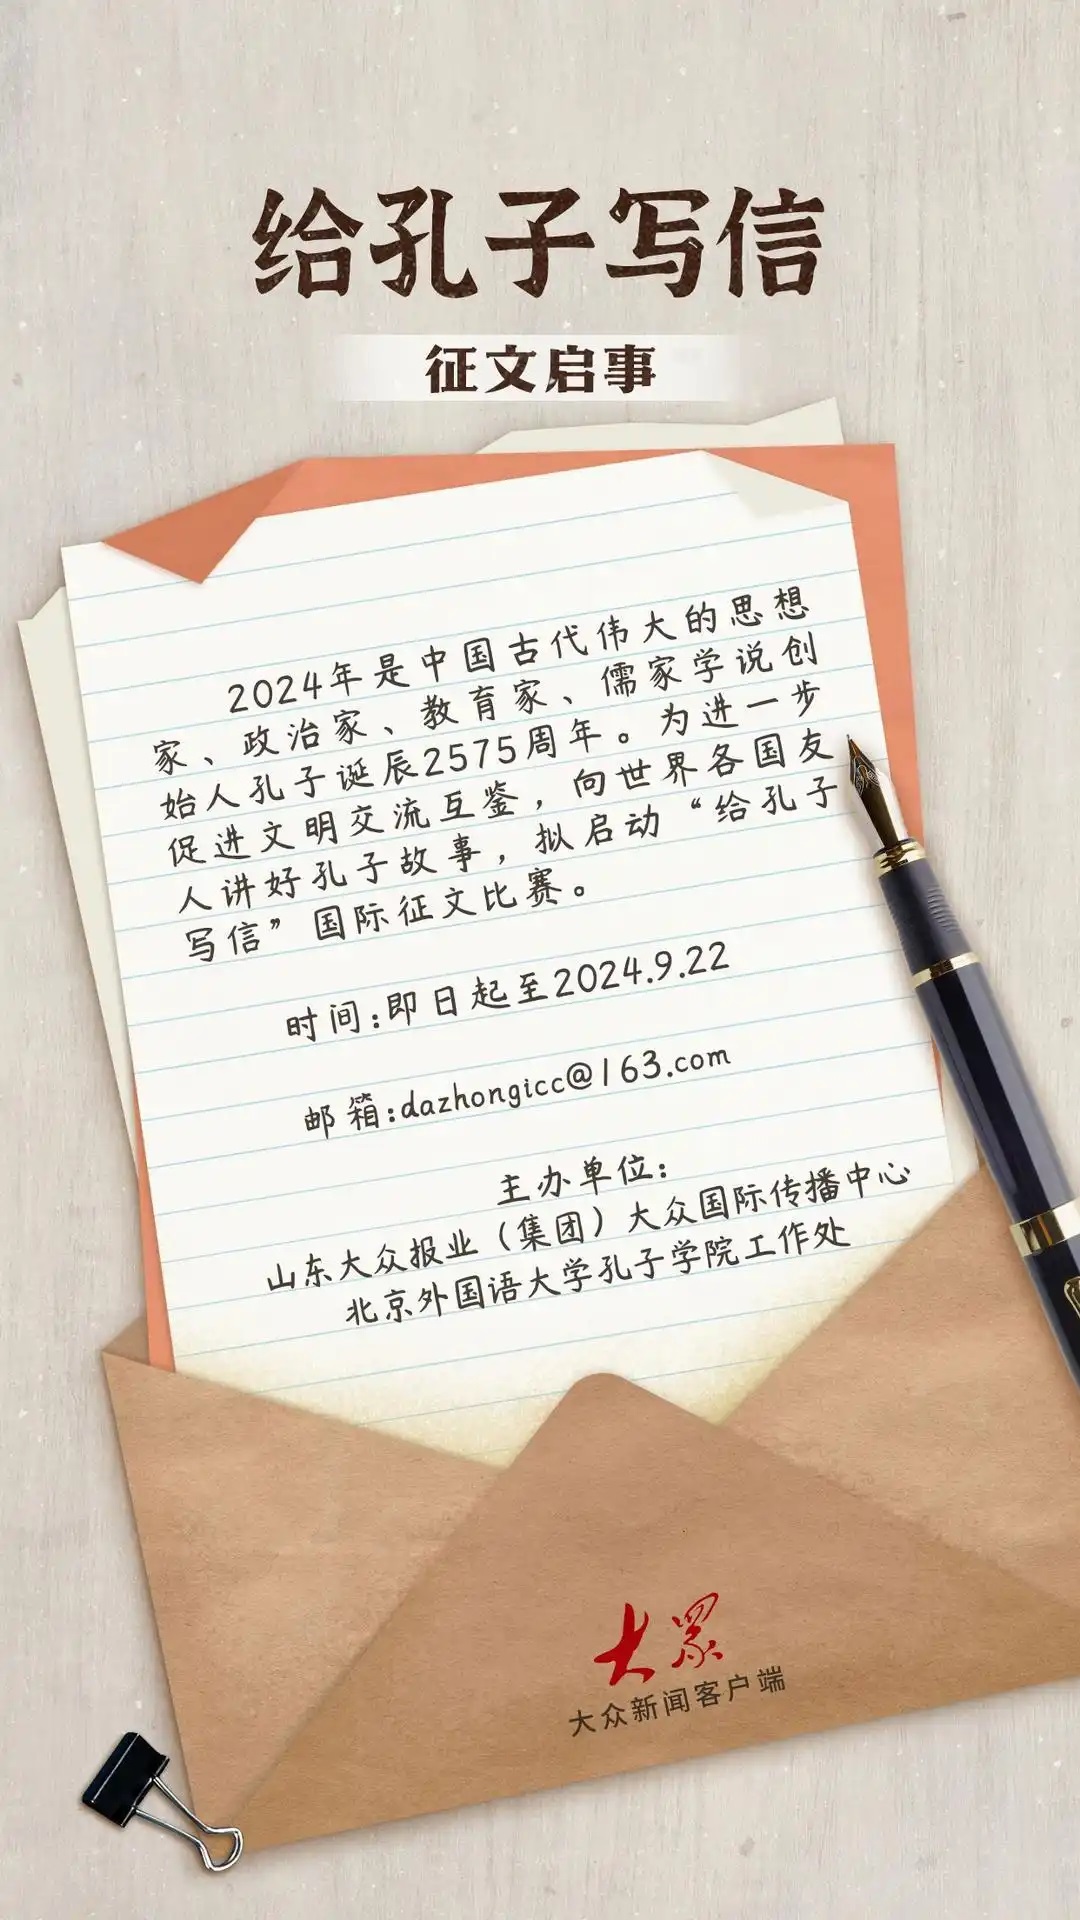 给孔子写信
征文启事
2024年是中国古代伟大的思想
家、政治家、教育家、儒家学说创
始人孔子诞辰2575周年。为进一步
促进文明交流互鉴，向世界各国友
人讲好孔子故事，拟启动“给孔子
写信”国际征文比赛。
时间:即日起至2024.9.22
邮箱:dazhongicc@163.com
主办单位:
山东大众报业（集团）大众国际传播中心
北京外国语大学孔子学院工作处
大众
大众新闻客户端